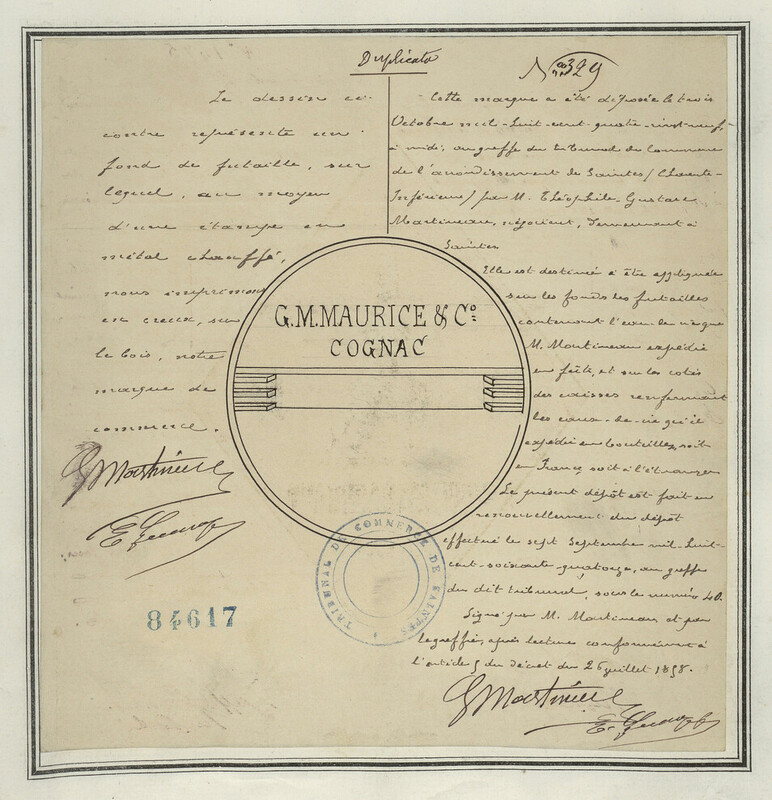 Duplicata
Nos 329
Le dessin ci-
contre représente un
fond de futaille, sur
lequel, au moyen
d'une étampe en
métal chauffé,
nous imprimons
en creux, sur
le bois, notre
marque de
commerce.
G Martineau
84617
G.M.MAURICE & Co
COGNAC
TRIBUNAL DE COMMERCE DE SAINTES
Cette marque a été déposée le trois
Octobre mil-huit-cent-quatre-vingt-neuf,
à midi, au greffe du tribunal de Commerce
de l'arrondissement de Saintes (Charente-
Inférieure) par M. Théophile-Gustave
Martineau, négociant, demeurant à
Saintes
Elle est destinée à être appliquée
sur les fonds des futailles
contenant l'eau-de-vie que
M. Martineau expédie
en fûts, et sur les cotés
des caisses renfermant
les eaux-de-vie qu'il
expédie en bouteilles, soit
en France soit à l'étranger
Le présent dépôt est fait en
renouvellement du dépôt
effectué le sept Septembre mil-huit-
cent-soixante-quatorze, au greffe
du dit tribunal, sous le numéro 40.
Signé par M. Martineau et par
le greffier, après lecture conformément à
l'article 5 du décret du 26 juillet 1858.
G Martineau